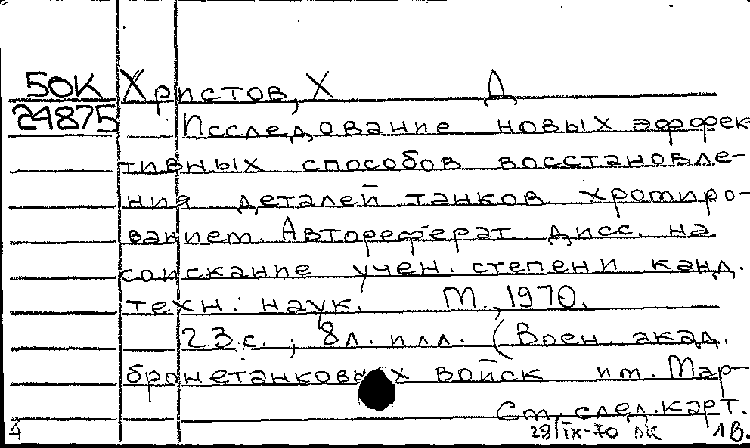 50К Христов, Х Д
24875 Исследование новых эффек
тивных способов восстановле-
ния деталей танков хромиро-
ванием. Автореферат дисс. на
соискание учен. степени канд.
техн. наук. М., 1970.
23 с.; 8 л. илл. (Воен. акад.
бронетанковых войск им. Мар-
См. след. карт.
4 29/IX-70 1В.